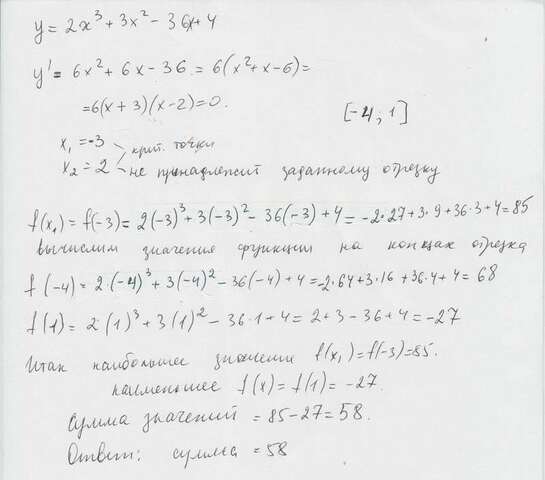 y = 2x³ + 3x² - 36x + 4
y' = 6x² + 6x - 36 = 6(x² + x - 6) =
= 6(x + 3)(x - 2) = 0.
[-4; 1]
x₁ = -3 крит. точки
x₂ = 2 не принадлежит заданному отрезку
f(x₁) = f(-3) = 2(-3)³ + 3(-3)² - 36(-3) + 4 = -2·27 + 3·9 + 36·3 + 4 = 85
вычислим значения функции на концах отрезка
f(-4) = 2·(-4)³ + 3(-4)² - 36(-4) + 4 = -2·64 + 3·16 + 36·4 + 4 = 68
f(1) = 2·(1)³ + 3(1)² - 36·1 + 4 = 2 + 3 - 36 + 4 = -27
Итак наибольшее значение f(x₁) = f(-3) = 85.
наименьшее f(x) = f(1) = -27.
Сумма значений = 85 - 27 = 58.
Ответ: сумма = 58